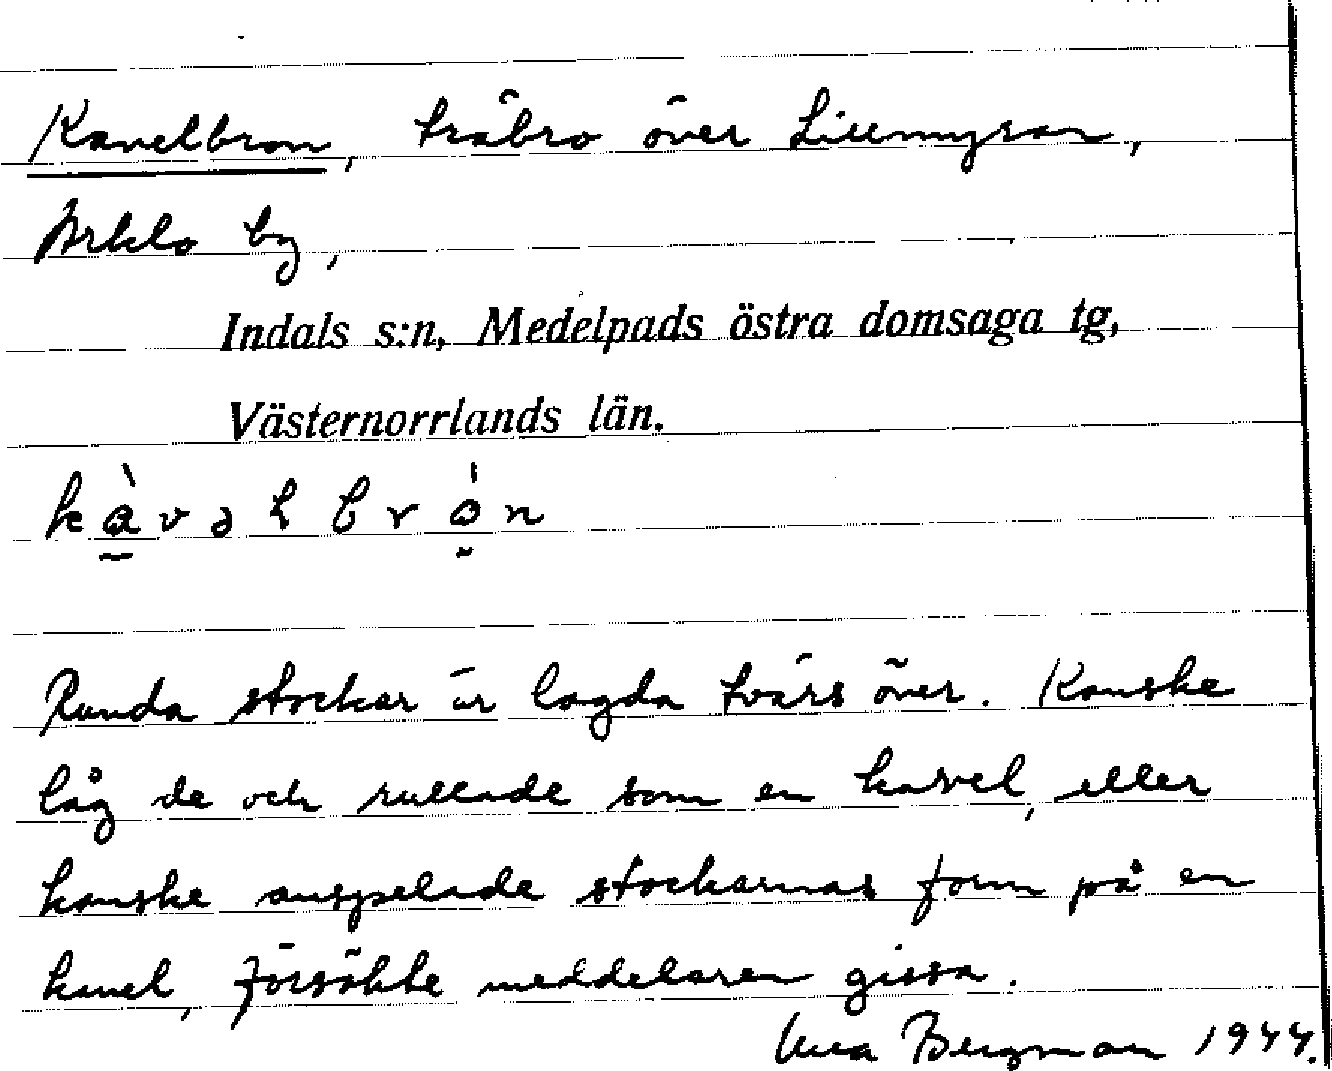 Kavelbron, träbro över Lillmyran,
Arklo by,
Indals s:n, Medelpads östra domsaga tg,
Västernorrlands län.
kàvəl brón
Runda stockar är lagda tvärs över. Kanske
låg de och rullade som en kavel, eller
kanske anspelade stockarnas form på en
kavel, försökte meddelaren gissa.
Bergman 1944.